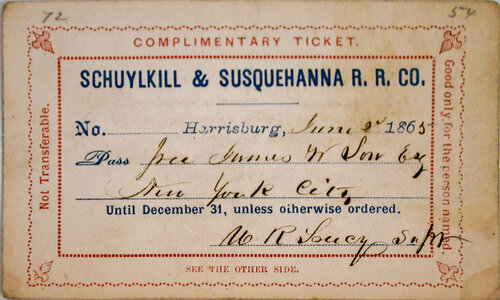 72
54
COMPLIMENTARY TICKET.
SCHUYLKILL & SUSQUEHANNA R. R. CO.
No. Harrisburg, June 2d 1865
Pass free James W Low Esq
New York City
Until December 31, unless otherwise ordered.
Supt
SEE THE OTHER SIDE.
Not Transferable.
Good only for the person named.